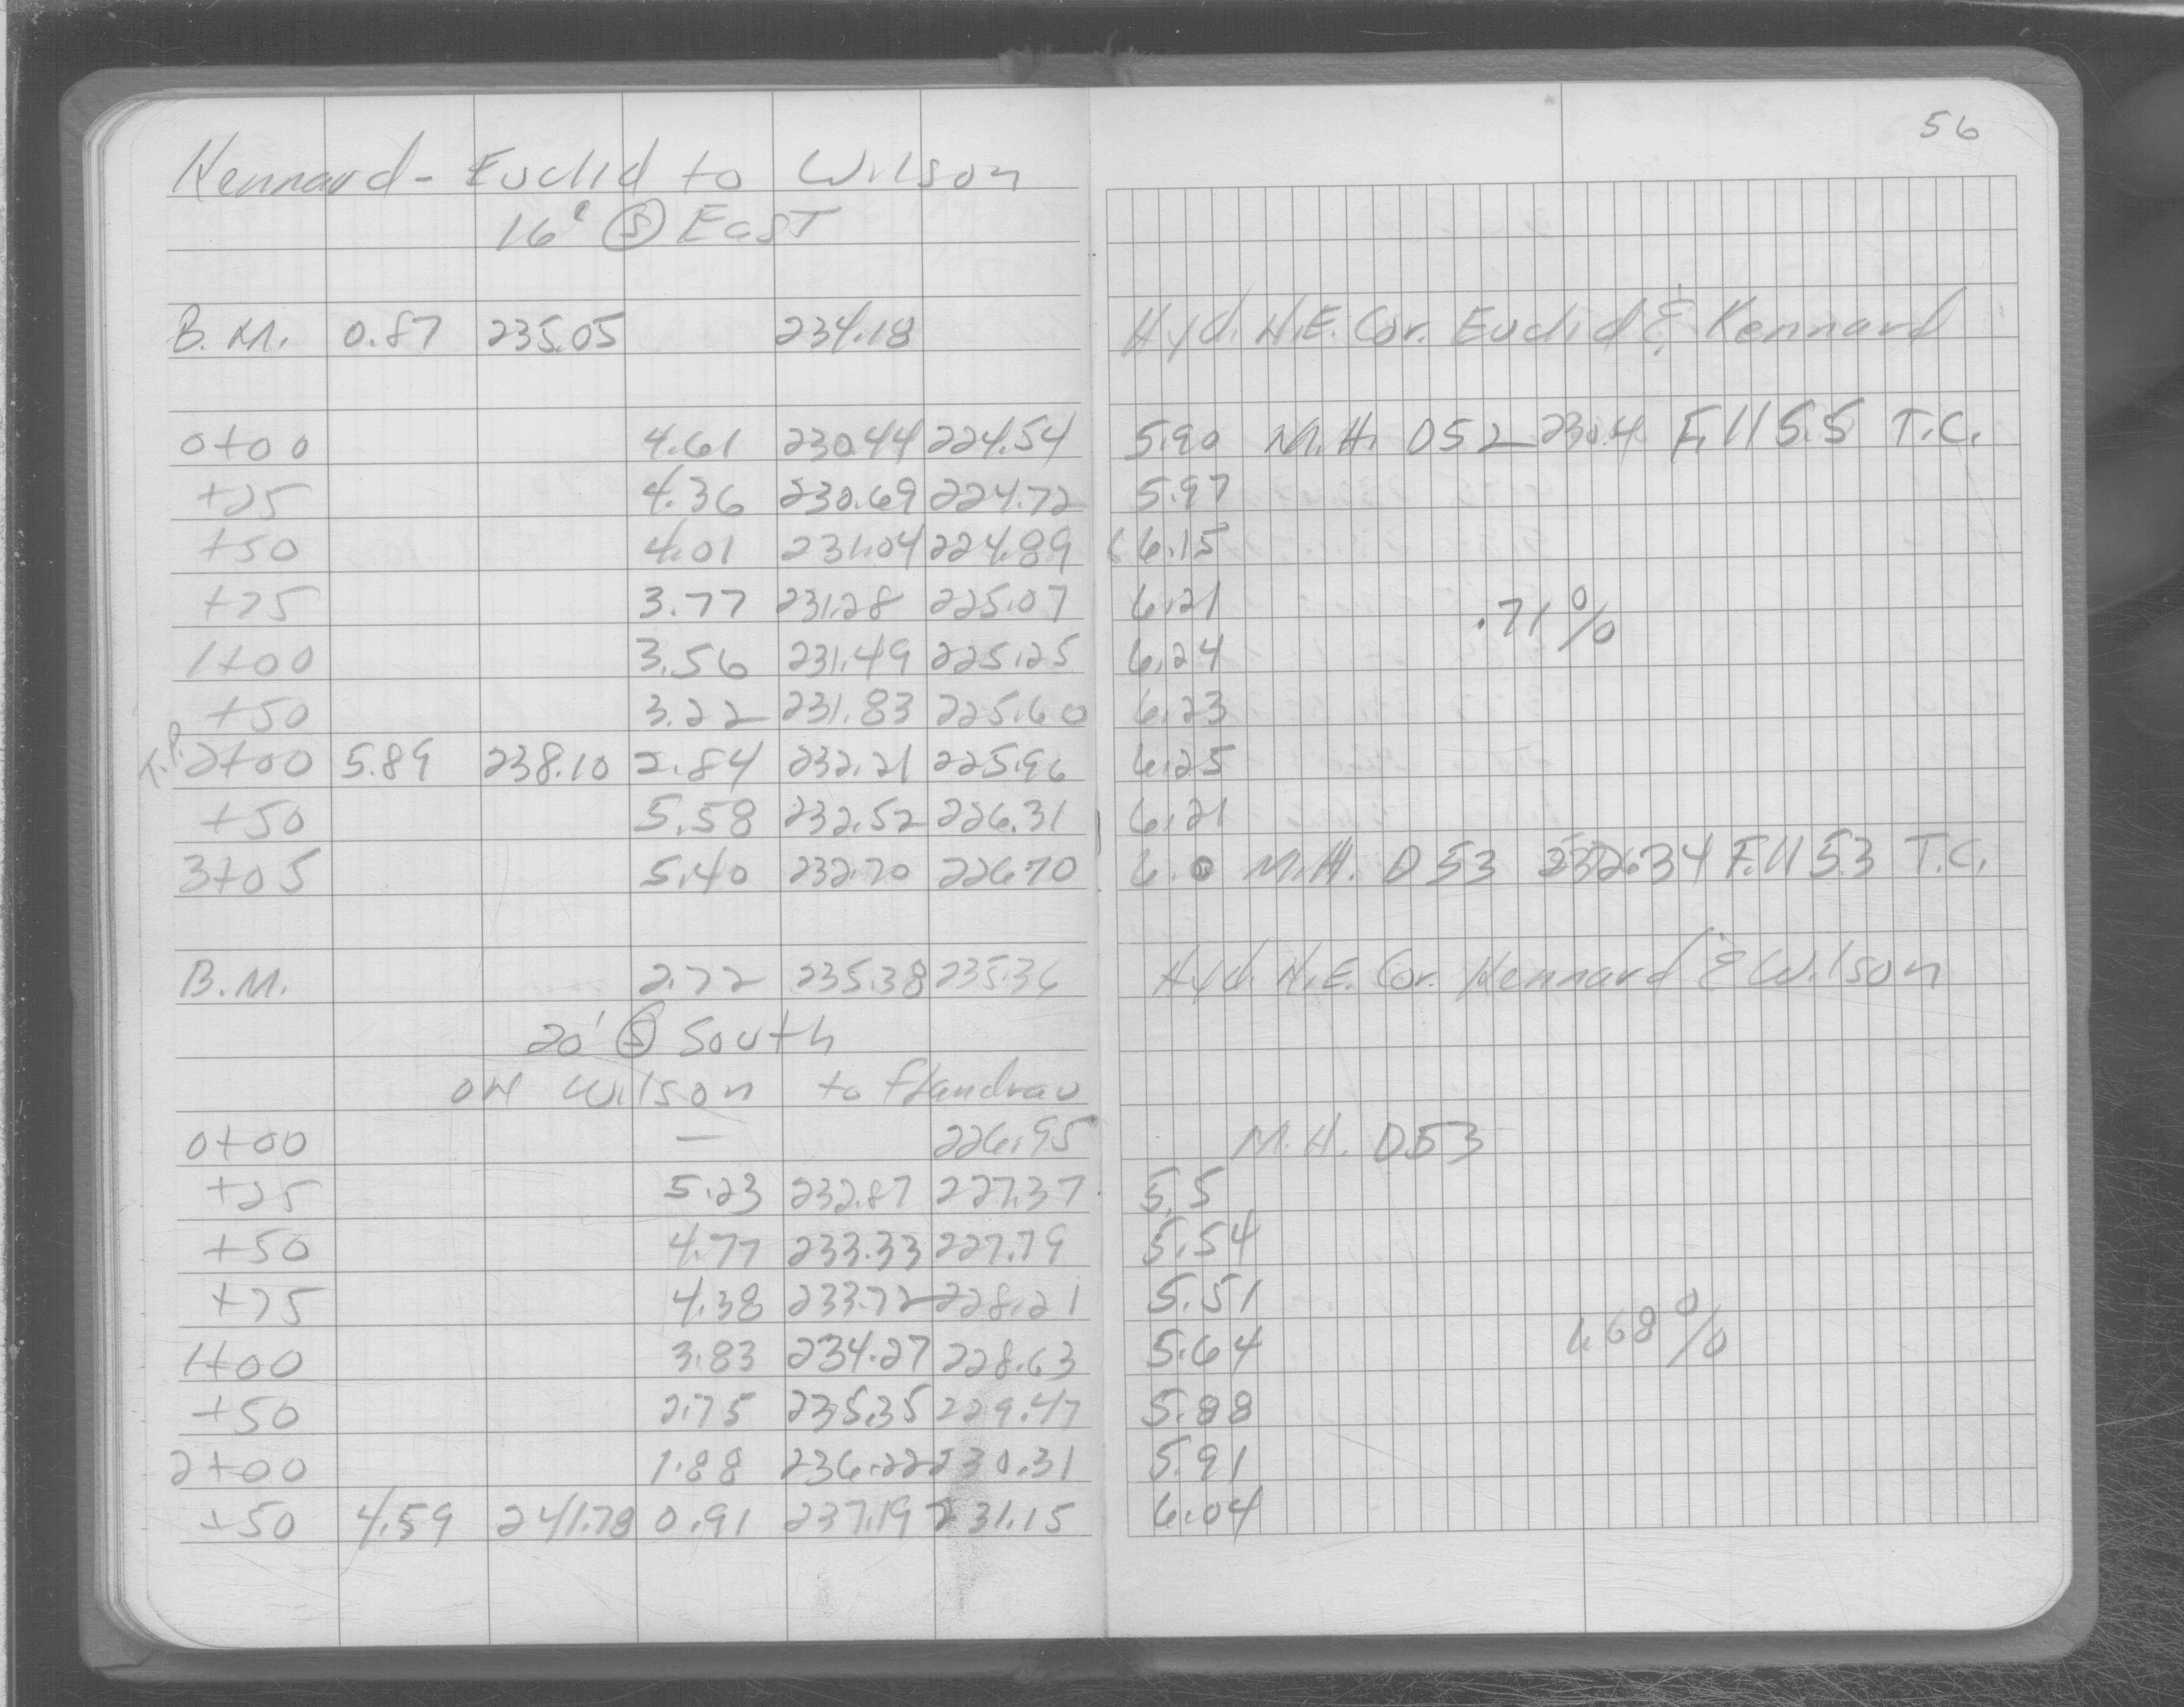 56
Kennard - Euclid to Wilson
16' Ⓢ East
B.M. 0.87 235.05 234.18 Hyd. N.E. Cor. Euclid & Kennard
0+00 4.61 230.44 224.54 5.90 M.H. D52 230.4 Fill 5.5 T.C.
+25 4.36 230.69 224.72 5.97
+50 4.01 231.04 224.89 6.15
+75 3.77 231.28 225.07 6.21 .71%
1+00 3.56 231.49 225.25 6.24
+50 3.22 231.83 225.60 6.23
T.P. 2+00 5.89 238.10 2.84 232.21 225.96 6.25
+50 5.58 232.52 226.31 6.21
3+05 5.40 232.70 226.70 6.0 M.H. D53 Fill 5.3 T.C.
B.M. 2.72 235.38 235.36 Hyd. N.E. Cor. Kennard & Wilson
20' Ⓢ South
on Wilson to Flandrau
0+00 — 226.95 M.H. D53
+25 5.23 232.87 227.37 5.5
+50 4.77 233.33 227.79 5.54
+75 4.38 233.72 228.21 5.51
1+00 3.83 234.27 228.63 5.64 1.68%
+50 2.75 235.35 229.47 5.88
2+00 1.88 236.22 230.31 5.91
+50 4.59 241.78 0.91 237.19 231.15 6.04